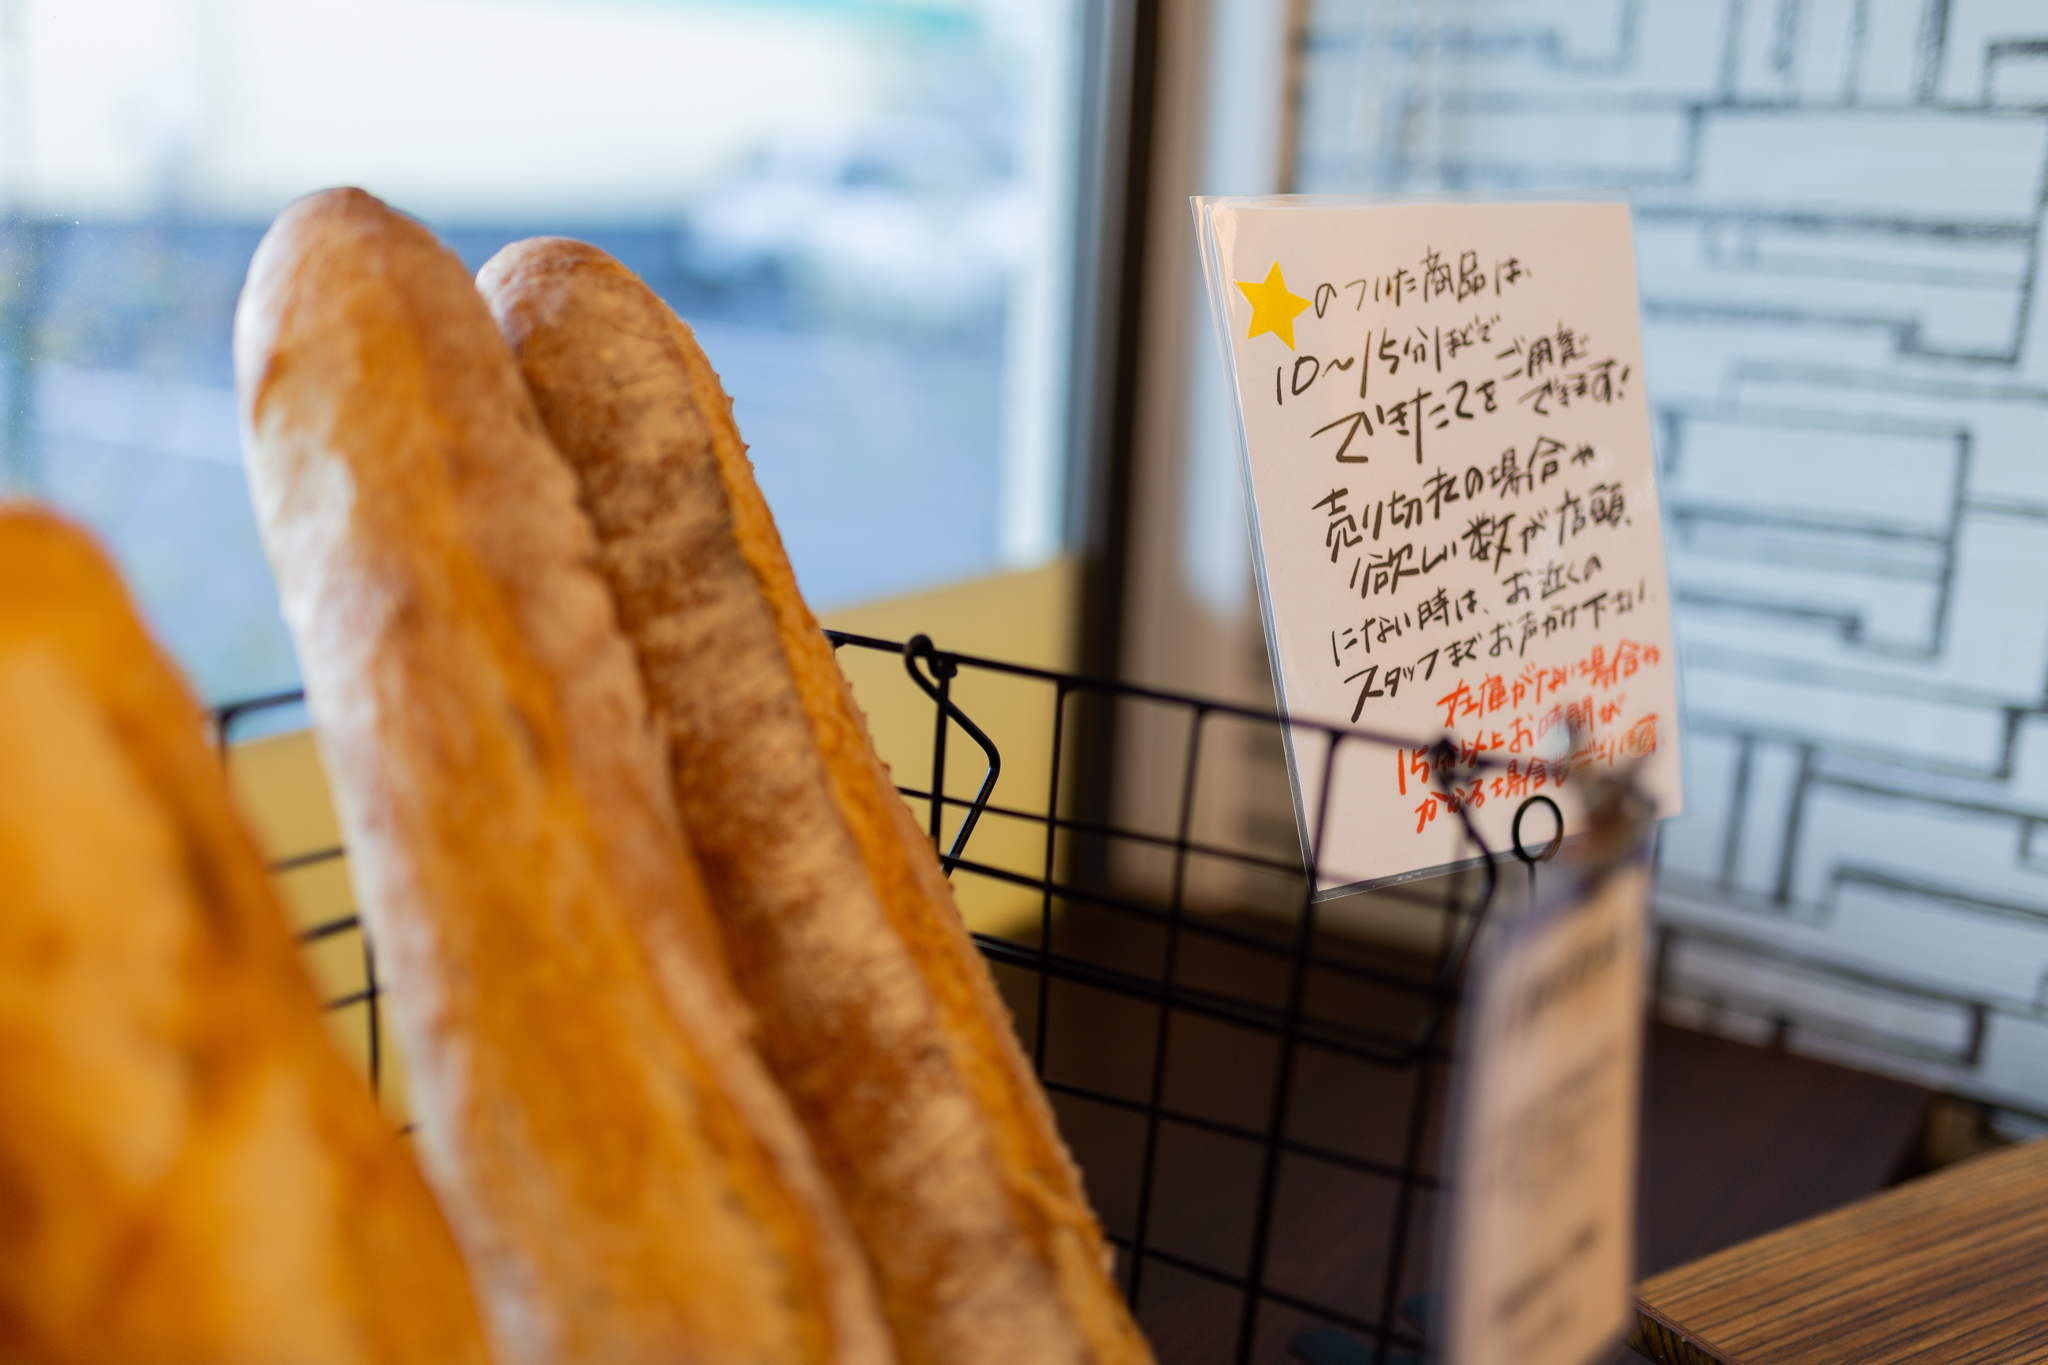 のついた商品は、
10〜15分ほどで
できたてをご用意
できます!
売り切れの場合や
欲しい数が店頭
にない時は、お近くの
スタッフまでお声がけ下さい。
在庫がない場合や
15分以上お時間が
かかる場合もございます。